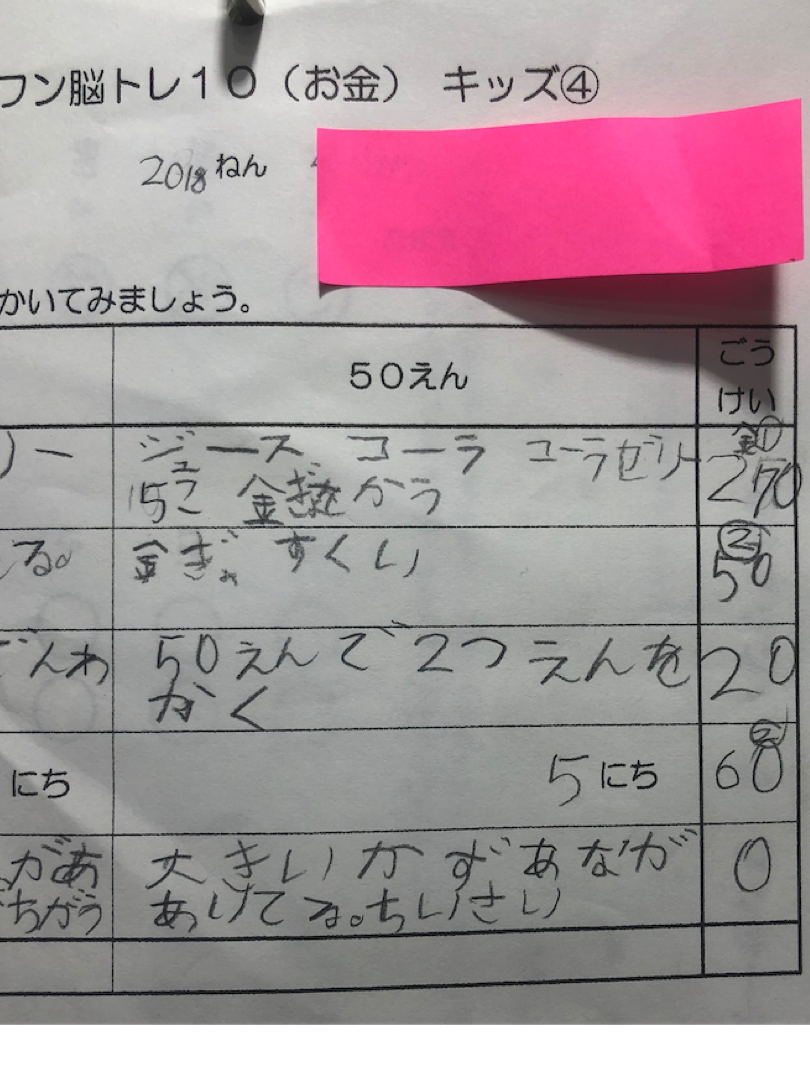 フン脳トレ１０（お金） キッズ④
2018ねん
かいてみましょう。
５０えん
ごう
けい
リー
ジュース コーラ コーラゼリー
15こ 金ぎょを かう
金①
250
る。
金ぎょ すくい
②
50
でんわ
50えんで 2つ えんを
かく
20
にち
5にち
②
60
があ
ちがう
大きい かず あなが
あけてる。ちいさい
0